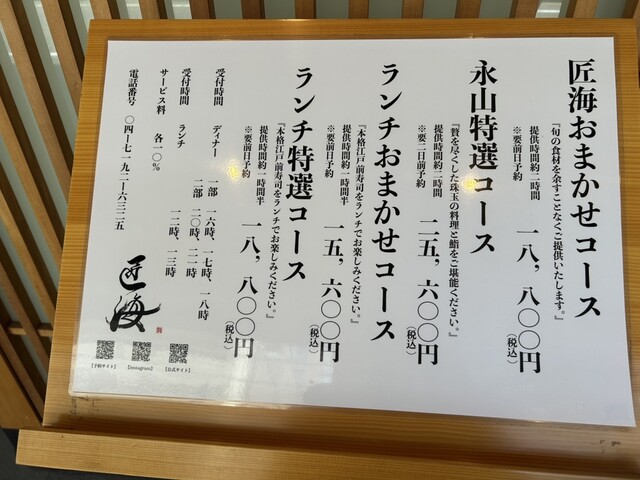 匠海おまかせコース
『旬の食材を余すことなくご提供いたします。』
提供時間約二時間
※要前日予約
一八，八〇〇円
（税込）
永山特選コース
『贅を尽くした珠玉の料理と鮨をご堪能ください。』
提供時間約二時間
※要二日前予約
二五，六〇〇円
（税込）
ランチおまかせコース
『本格江戸前寿司をランチでお楽しみください。』
提供時間約一時間半
※要前日予約
一五，六〇〇円
（税込）
ランチ特選コース
『本格江戸前寿司をランチでお楽しみください。』
提供時間約一時間半
※要前日予約
一八，八〇〇円
（税込）
受付時間 ディナー 一部 一六時、一七時、一八時
二部 二〇時、二一時
受付時間 ランチ 一二時、一三時
サービス料 各一〇％
電話番号 〇四-七一九二-六三二五
匠海
【予約サイト】
【Instagram】
【公式サイト】